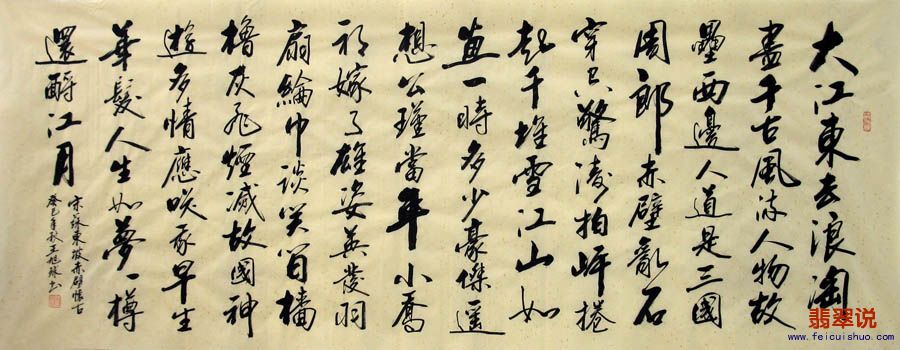 大江東去浪淘
盡千古風流人物故
壘西邊人道是三國
周郎赤壁亂石
穿空驚濤拍岸捲
起千堆雪江山如
畫一時多少豪傑遥
想公瑾當年小喬
初嫁了雄姿英發羽
扇綸巾談笑間檣
櫓灰飛煙滅故國神
遊多情應笑我早生
華髮人生如夢一樽
還酹江月
宋蘇東坡赤壁懷古
癸巳年秋王旭
翡翠说
www.feicuishuo.com